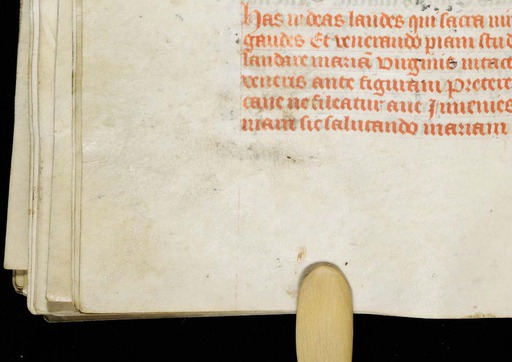 Has videas laudes qui sacra vir
gaudes Et venerando piam stud
laudare mariã virginis intacte
veneris ante figuram pretere
cave ne sileatur ave Invenies
mam sic salutando mariam